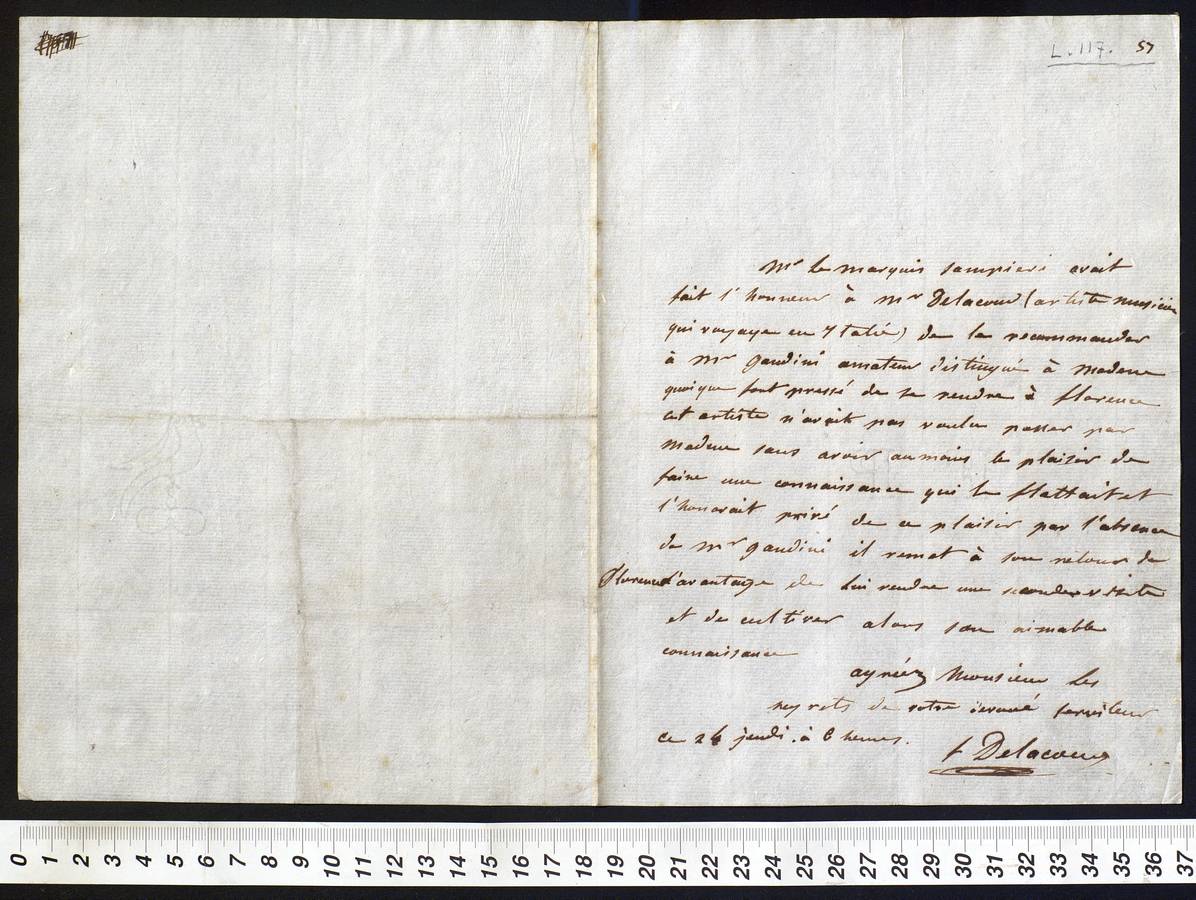 L. 117. 57
Mr le marquis Sampieri avait
fait l'honneur à Mr Delacour (artiste musicien
qui voyage en Italie) de le recommander
à Mr Gandini amateur distingué à Modene
quoique fort pressé de se rendre à florence
cet artiste n'avait pas voulu passer par
modene sans avoir au moins le plaisir de
faire une connaissance qui le flattait et
l'honorait privé de ce plaisir par l'absence
de Mr gandini il remet à son retour de
Florence l'avantage de lui rendre une seconde visite
et de cultiver alors son aimable
connaissance
agréez Monsieur les
regrets de votre devoué serviteur
ce 24 jeudi. à 6 heures.
Delacour
0 1 2 3 4 5 6 7 8 9 10 11 12 13 14 15 16 17 18 19 20 21 22 23 24 25 26 27 28 29 30 31 32 33 34 35 36 37